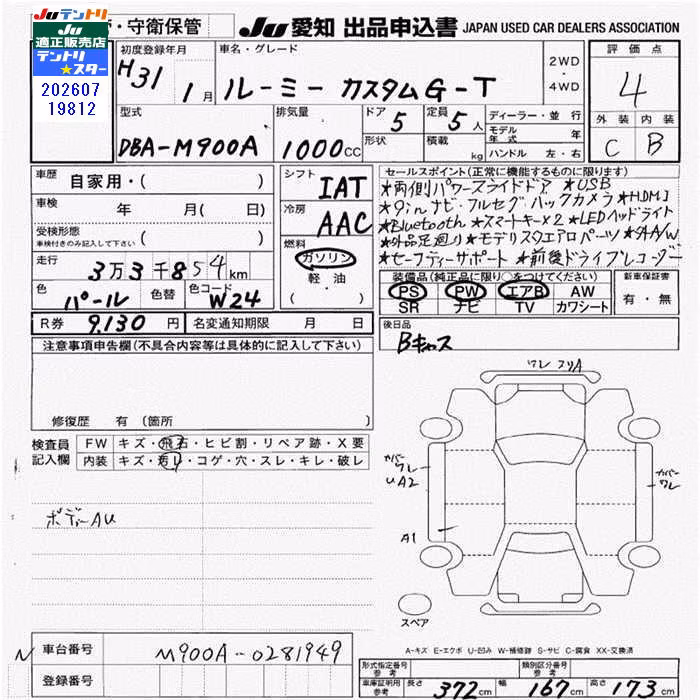 Juテントリ
Ju
適正販売店
テントリ
★スター
202607
19812
・守衛保管
Ju 愛知 出品申込書 JAPAN USED CAR DEALERS ASSOCIATION
初度登録年月
H31 1月
車名・グレード
ルーミー カスタムG-T
2WD
・
4WD
評価点
4
外装 内装
C B
型式
DBA-M900A
排気量
1000cc
ドア 5
形状
定員 5人
積載 kg
ディーラー・並行
モデル年式 年
ハンドル 左・右
車歴 自家用・( )
車検 年 月( 日)
受検形態
車検付きのみ記入して下さい ( )
走行 3万3千854km
色 パール 色替 色コード W24
シフト IAT
冷房 AAC
燃料
ガソリン
軽・油
( )
セールスポイント(正常に機能するものに限ります)
★両側パワースライドドア ★USB
★9inナビ・フルセグ バックカメラ★HDMI
★Bluetooth ★スマートキー×2 ★LEDヘッドライト
★外品足廻り★モデリスタエアロパーツ ★外A/W
★セーフティーサポート ★前後ドライブレコーダー
装備品(純正品に限り○をつけてください)
PS PW エアB AW
SR ナビ TV カワシート
新車保証書
有・無
R券 9,130円 名変通知期限 月 日
後日品
Bキャス
注意事項申告欄(不具合内容等は具体的に記入して下さい)
修復歴 有(箇所
検査員
記入欄
FW キズ・飛石・ヒビ割・リペア跡・X要
内装 キズ・汚れ・コゲ・穴・スレ・キレ・破レ
ボデーAU
ワレ スリA
カバー
ワレ
UA2
カバー
ワレ
A1
スペア
A-キズ E-エクボ U-凹み W-補修跡 S-サビ C-腐食 XX-交換済
N 車台番号 M900A-0281949
登録番号
形式指定番号
参考
類別区分番号
参考
車庫証明用
参考
長さ 372cm 幅 167cm 高さ 173cm